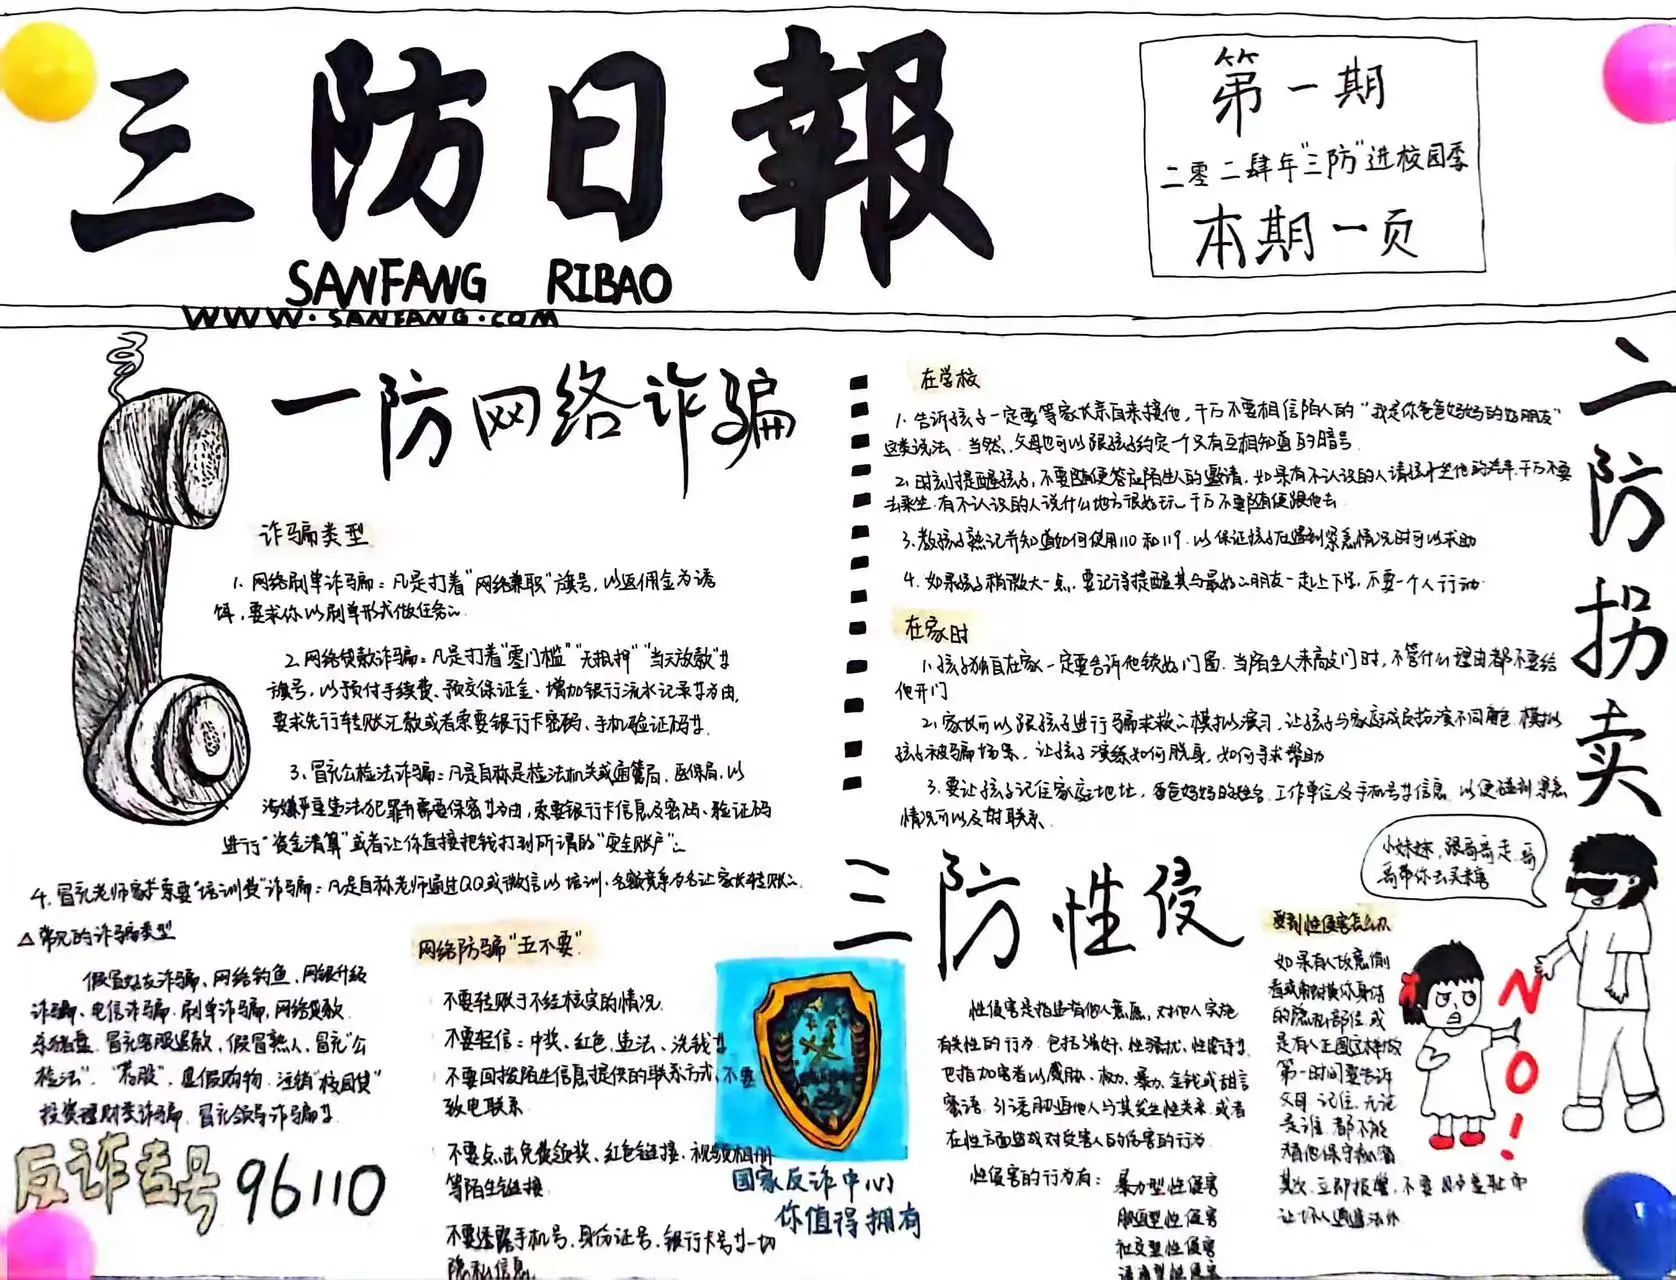 三防日報
SANFANG RIBAO
WWW.SANFANG.COM
第一期
二零二肆年"三防"进校园季
本期一页
一防网络诈骗
诈骗类型
1. 网络刷单诈骗：凡是打着"网络兼职"旗号，以返佣金为诱
饵，要求你以刷单形式做任务
2. 网络贷款诈骗：凡是打着"零门槛""无抵押""当天放款"等
旗号，以预付手续费、预交保证金、增加银行流水记录等为由，
要求先行转账汇款或者索要银行卡密码、手机验证码等.
3. 冒充公检法诈骗：凡是自称是检法机关或通管局、医保局，以
涉嫌严重违法犯罪需要保密等为由，索要银行卡信息及密码、验证码
进行"资金清算"或者让你直接把钱打到所谓的"安全账户"
4. 冒充老师家长索要"培训费"诈骗：凡是自称老师通过QQ或微信以培训、名额竞争为名让家长转账
△常见的诈骗类型
假冒好友诈骗、网络钓鱼、网银升级
诈骗、电信诈骗、刷单诈骗、网络贷款
杀猪盘、冒充客服退款，假冒熟人，冒充"公
检法"，"荐股"，虚假购物，注销"校园贷"
投资理财类诈骗，冒充领导诈骗等
反诈专号 96110
网络防骗"五不要"
不要转账于不经核实的情况.
不要轻信：中奖、红包、违法、洗钱等
不要回拨陌生信息提供的联系方式，不要
致电联系
不要点击免费领奖、红包链接、视频相册
等陌生链接
不要透露手机号、身份证号、银行卡号等一切
隐私信息.
国家反诈中心
你值得拥有
二防拐卖
在学校
1. 告诉孩子一定要等家长亲自来接他，千万不要相信陌人的"我是你爸爸妈妈的好朋友"
这类说法. 当然，父母也可以跟孩子约定一个只有互相知道的暗号
2. 时刻提醒孩子，不要随便答应陌生人的邀请，如果有不认识的人请孩子坐他的汽车，千万不要
去乘坐. 有不认识的人说什么地方很好玩，千万不要随便跟他去
3. 教孩子熟记并知道如何使用110和119，以保证孩子在遇到紧急情况时可以求助
4. 如果孩子稍微大一点，要记得提醒其与最好的朋友一起上下学，不要一个人行动
在家时
1. 孩子独自在家一定要告诉他锁好门窗. 当陌生人来敲门时，不管什么理由都不要给
他开门
2. 家长可以跟孩子进行骗求救的模拟演习，让孩子与家庭成员扮演不同角色，模拟
孩子被骗场景，让孩子演练如何脱身，如何寻求帮助
3. 要让孩子记住家庭地址，爸爸妈妈的姓名、工作单位及手机号等信息，以便碰到紧急
情况可以及时联系
三防性侵
性侵害是指违背他人意愿，对他人实施
有关性的行为，包括强奸，性骚扰，性虐待等
也指加害者以威胁、权力、暴力、金钱或甜言
蜜语，引诱胁迫他人与其发生性关系，或者
在性方面造成对受害人的伤害的行为
性侵害的行为有：
暴力型性侵害
胁迫型性侵害
社交型性侵害
诱惑型性侵害
受到性侵害怎么办
如果有人故意偷
看或触摸你身体
的隐私部位，或
是有人正图这样做
第一时间要告诉
父母. 记住，无论
是谁，都不能
替他保守秘密
其次，立即报警，不要
让坏人逍遥法外
小妹妹，跟哥哥走，哥
哥带你去买糖
NO!